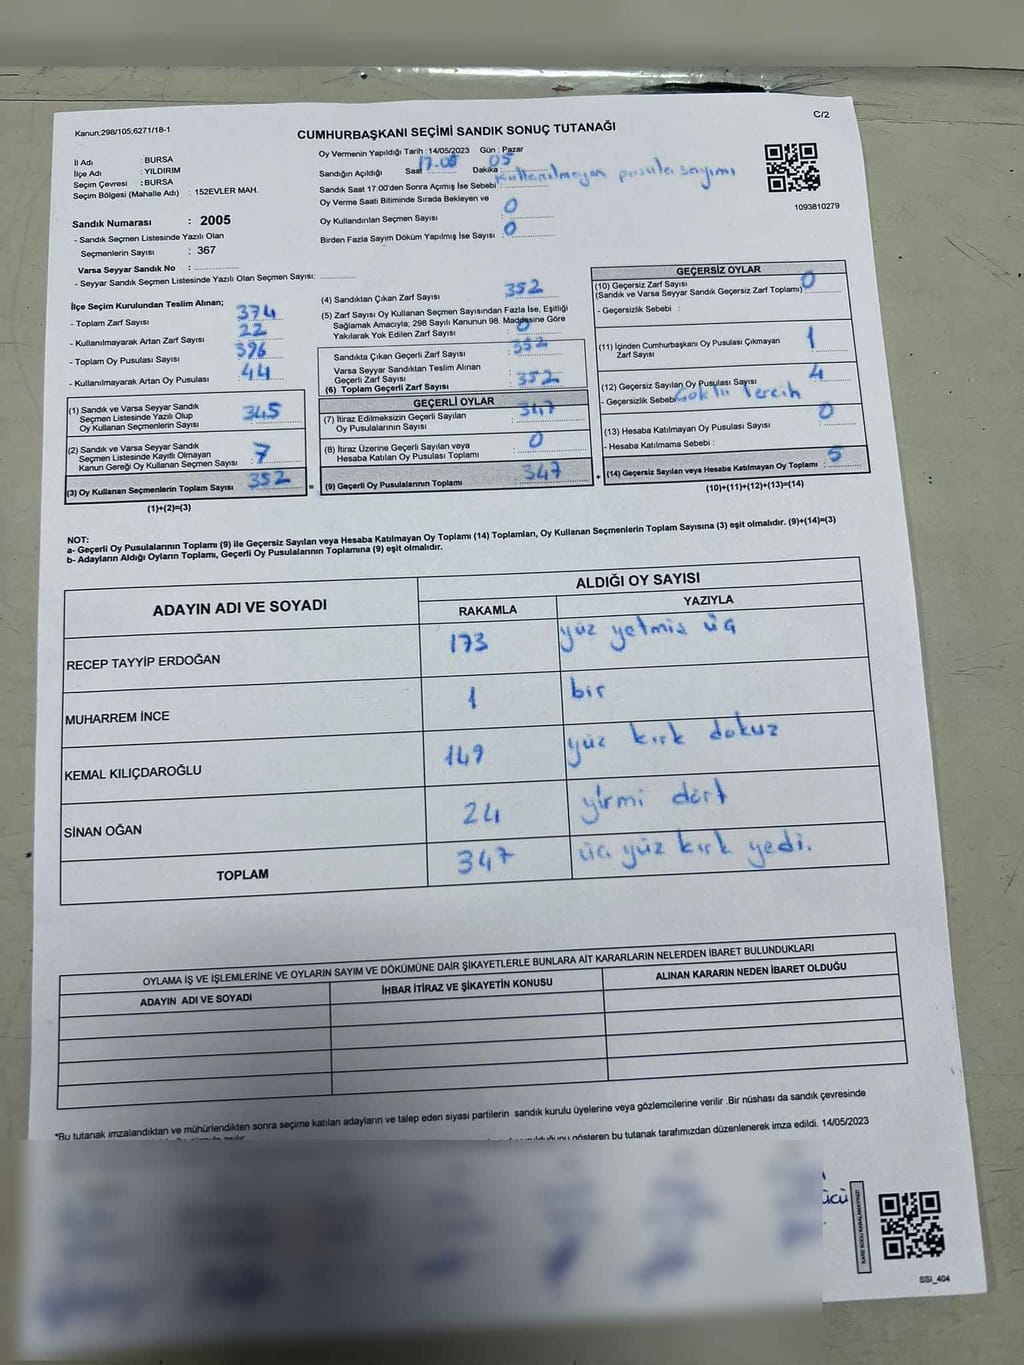 Kanun;298/105;6271/18-1
C/2
CUMHURBAŞKANI SEÇİMİ SANDIK SONUÇ TUTANAĞI
İl Adı : BURSA
İlçe Adı : YILDIRIM
Seçim Çevresi : BURSA
Seçim Bölgesi (Mahalle Adı) : 152EVLER MAH.
Oy Vermenin Yapıldığı Tarih : 14/05/2023 Gün : Pazar
Sandığın Açıldığı Saat 17.00 Dakika 05
Sandık Saat 17:00'den Sonra Açılmış İse Sebebi : Kullanılmayan pusula sayımı
Oy Verme Saati Bitiminde Sırada Bekleyen ve
Oy Kullandırılan Seçmen Sayısı : 0
Birden Fazla Sayım Döküm Yapılmış İse Sayısı : 0
1093810279
Sandık Numarası : 2005
- Sandık Seçmen Listesinde Yazılı Olan
Seçmenlerin Sayısı : 367
Varsa Seyyar Sandık No :
- Seyyar Sandık Seçmen Listesinde Yazılı Olan Seçmen Sayısı:
İlçe Seçim Kurulundan Teslim Alınan;
- Toplam Zarf Sayısı : 374
- Kullanılmayarak Artan Zarf Sayısı : 22
- Toplam Oy Pusulası Sayısı : 396
- Kullanılmayarak Artan Oy Pusulası : 44
(1) Sandık ve Varsa Seyyar Sandık
Seçmen Listesinde Yazılı Olup
Oy Kullanan Seçmenlerin Sayısı : 345
(2) Sandık ve Varsa Seyyar Sandık
Seçmen Listesinde Kayıtlı Olmayan
Kanun Gereği Oy Kullanan Seçmen Sayısı : 7
(3) Oy Kullanan Seçmenlerin Toplam Sayısı : 352
(1)+(2)=(3)
(4) Sandıktan Çıkan Zarf Sayısı : 352
(5) Zarf Sayısı Oy Kullanan Seçmen Sayısından Fazla İse, Eşitliği
Sağlamak Amacıyla; 298 Sayılı Kanunun 98. Maddesine Göre
Yakılarak Yok Edilen Zarf Sayısı : 0
Sandıkta Çıkan Geçerli Zarf Sayısı : 352
Varsa Seyyar Sandıktan Teslim Alınan
Geçerli Zarf Sayısı
(6) Toplam Geçerli Zarf Sayısı : 352
GEÇERLİ OYLAR
(7) İtiraz Edilmeksizin Geçerli Sayılan
Oy Pusulalarının Sayısı : 347
(8) İtiraz Üzerine Geçerli Sayılan veya
Hesaba Katılan Oy Pusulası Toplamı : 0
(9) Geçerli Oy Pusulalarının Toplamı : 347
GEÇERSİZ OYLAR
(10) Geçersiz Zarf Sayısı
(Sandık ve Varsa Seyyar Sandık Geçersiz Zarf Toplamı) : 0
- Geçersizlik Sebebi :
(11) İçinden Cumhurbaşkanı Oy Pusulası Çıkmayan
Zarf Sayısı : 1
(12) Geçersiz Sayılan Oy Pusulası Sayısı : 4
- Geçersizlik Sebebi : Çoklu Tercih
(13) Hesaba Katılmayan Oy Pusulası Sayısı : 0
- Hesaba Katılmama Sebebi :
(14) Geçersiz Sayılan veya Hesaba Katılmayan Oy Toplamı : 5
(10)+(11)+(12)+(13)=(14)
NOT:
a- Geçerli Oy Pusulalarının Toplamı (9) ile Geçersiz Sayılan veya Hesaba Katılmayan Oy Toplamı (14) Toplamları, Oy Kullanan Seçmenlerin Toplam Sayısına (3) eşit olmalıdır. (9)+(14)=(3)
b- Adayların Aldığı Oyların Toplamı, Geçerli Oy Pusulalarının Toplamına (9) eşit olmalıdır.
ADAYIN ADI VE SOYADI
ALDIĞI OY SAYISI
RAKAMLA YAZIYLA
RECEP TAYYİP ERDOĞAN 173 yüz yetmiş üç
MUHARREM İNCE 1 bir
KEMAL KILIÇDAROĞLU 149 yüz kırk dokuz
SİNAN OĞAN 24 yirmi dört
TOPLAM 347 üç yüz kırk yedi.
OYLAMA İŞ VE İŞLEMLERİNE VE OYLARIN SAYIM VE DÖKÜMÜNE DAİR ŞİKAYETLERLE BUNLARA AİT KARARLARIN NELERDEN İBARET BULUNDUKLARI
ADAYIN ADI VE SOYADI İHBAR İTİRAZ VE ŞİKAYETİN KONUSU ALINAN KARARIN NEDEN İBARET OLDUĞU
*Bu tutanak imzalandıktan ve mühürlendikten sonra seçime katılan adayların ve talep eden siyasi partilerin sandık kurulu üyelerine veya gözlemcilerine verilir .Bir nüshası da sandık çevresinde
gösteren bu tutanak tarafımızdan düzenlenerek imza edildi. 14/05/2023
KARE KODU KARALAMAYINIZ!
SSI_404